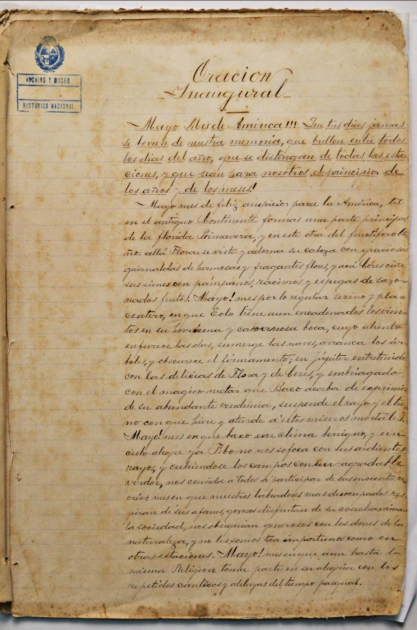 ARCHIVO Y MUSEO
HISTÓRICO NACIONAL
Oracion
Inaugural
Mayo Mes de América!!! Tus dias jamas
se borran de nuestra memoria, que brillen entre todos
los dias del año, que se distingan de todas las esta
ciones, y que sean para nosotros el principio de
los años y de los meses!
Mayo mes de feliz auspicio para la América, tú
en el antiguo Continente formas una parte principal
de la florida Primavera, y en este otra del fructifero Oto
ño: allá Flora se viste y adorna su cabeza con graciosas
guirnaldas de hermosas y fragantes flores, y aquí Ceres ciñe
sus sienes con pámpanos, racimos y espigas de sazo
nados frutos. Mayo! mes por lo regular sereno y pla
centero, en que Eolo tiene aun encadenados los vien
tos en su lóbrega y cavernosa boca, cuyo aliento
enfurece las olas, sumerge las naves, arranca los ár
boles, y obscurece el firmamento; en Júpiter entretenido
con las delicias de Flora y de Ceres, y embriagado
con el magico nectar que Baco acaba de esprimir
de su abundante vendimia, suspende el rayo y el true
no con que hiere y aterra á los miseros mortales.
Mayo! mes en que bajo un clima benigno, y un
cielo alegre ya Febo no nos sofoca con sus ardientes
rayos, y cubriendose los campos con un agradable
verdor, nos convida á todos á participar de sus
mes en que nuestros labradores mas descansados res
piran de sus afanes, gozosos disfrutan de su
la sociedad, nos obsequian generosos con los dones de la
naturaleza, y no les somos tan importunos como en
otras estaciones. Mayo! mes en que aun hasta la
misma Religion toma parte en su alegria con los
repetidos canticos y aleluyas del tiempo pascual.